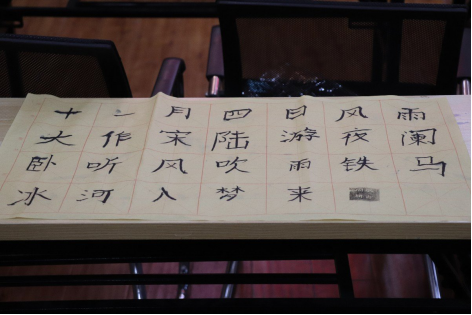 十一月四日风雨
大作宋陆游夜阑
卧听风吹雨铁马
冰河入梦来